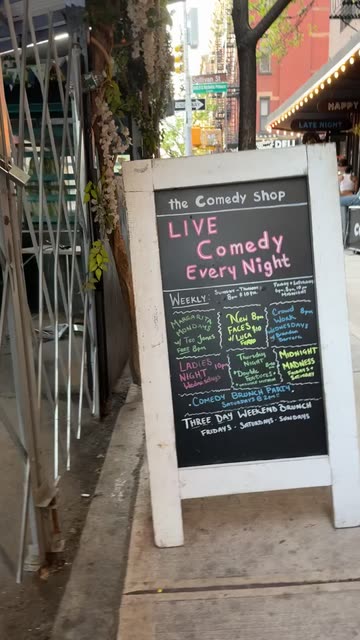 the Comedy Shop
LIVE
Comedy
Every Night
WEEKLY
SUNDAY - THURSDAY
8pm & 10pm
FRIDAY & SATURDAY
MIDNIGHT
MARGARITA
MONDAYS
w/ Tas James
FREE 8pm
New 8pm
FACES $10
w/ LUCA
Crowd 8pm
WORK
WEDNESDAYS
w/ Brandon
Barrera
LADIES
NIGHT 10pm
Wednesdays
Thursday
NIGHT
"Double
Features"
MIDNIGHT
MADNESS
FRIDAYS +
SATURDAY
COMEDY BRUNCH PARTY
SATURDAYS @ 2pm!!
THREE DAY WEEKEND BRUNCH
FRIDAYS - SATURDAYS - SUNDAYS
HAPPY
LATE NIGHT
DELI